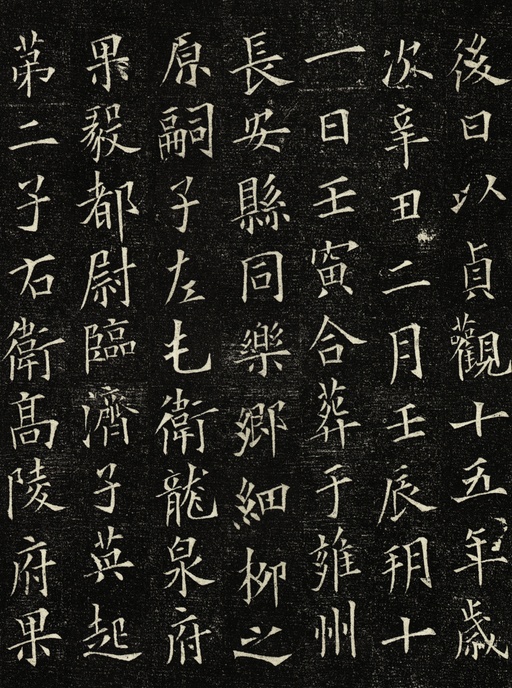 後日以貞觀十五年歲
次辛丑二月壬辰朔十
一日壬寅合葬于雍州
長安縣同樂鄉細柳之
原嗣子左屯衛龍泉府
果毅都尉臨濟子英起
第二子右衛高陵府果